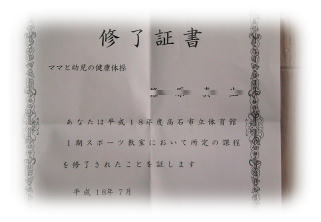 修了証書
ママと幼児の健康体操
あなたは平成18年度高石市立体育館
1期スポーツ教室において所定の課程
を修了されたことを証します
平成18年7月